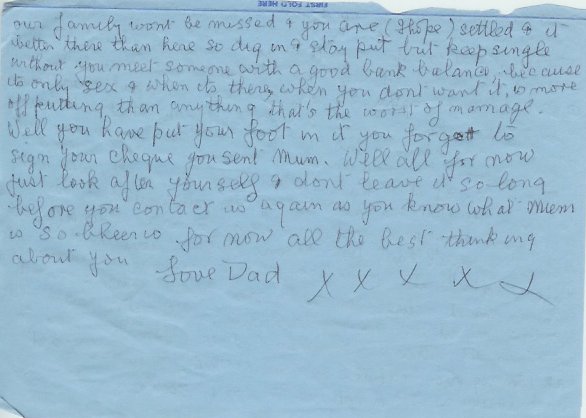 FIRST FOLD HERE
our family wont be missed & you are (I hope) settled & it
better there than here so dig in & stay put but keep single
without you meet someone with a good bank balance, because
its only sex & when its there, when you dont want it, is more
off putting than anything that's the worst of marriage.
Well you have put your foot in it you forgott to
sign your cheque you sent Mum. Well all for now
just look after yourself & dont leave it so long
before you contact us again as you know what Mum
is so Cheerio for now all the best thinking
about you Love Dad X X X X X